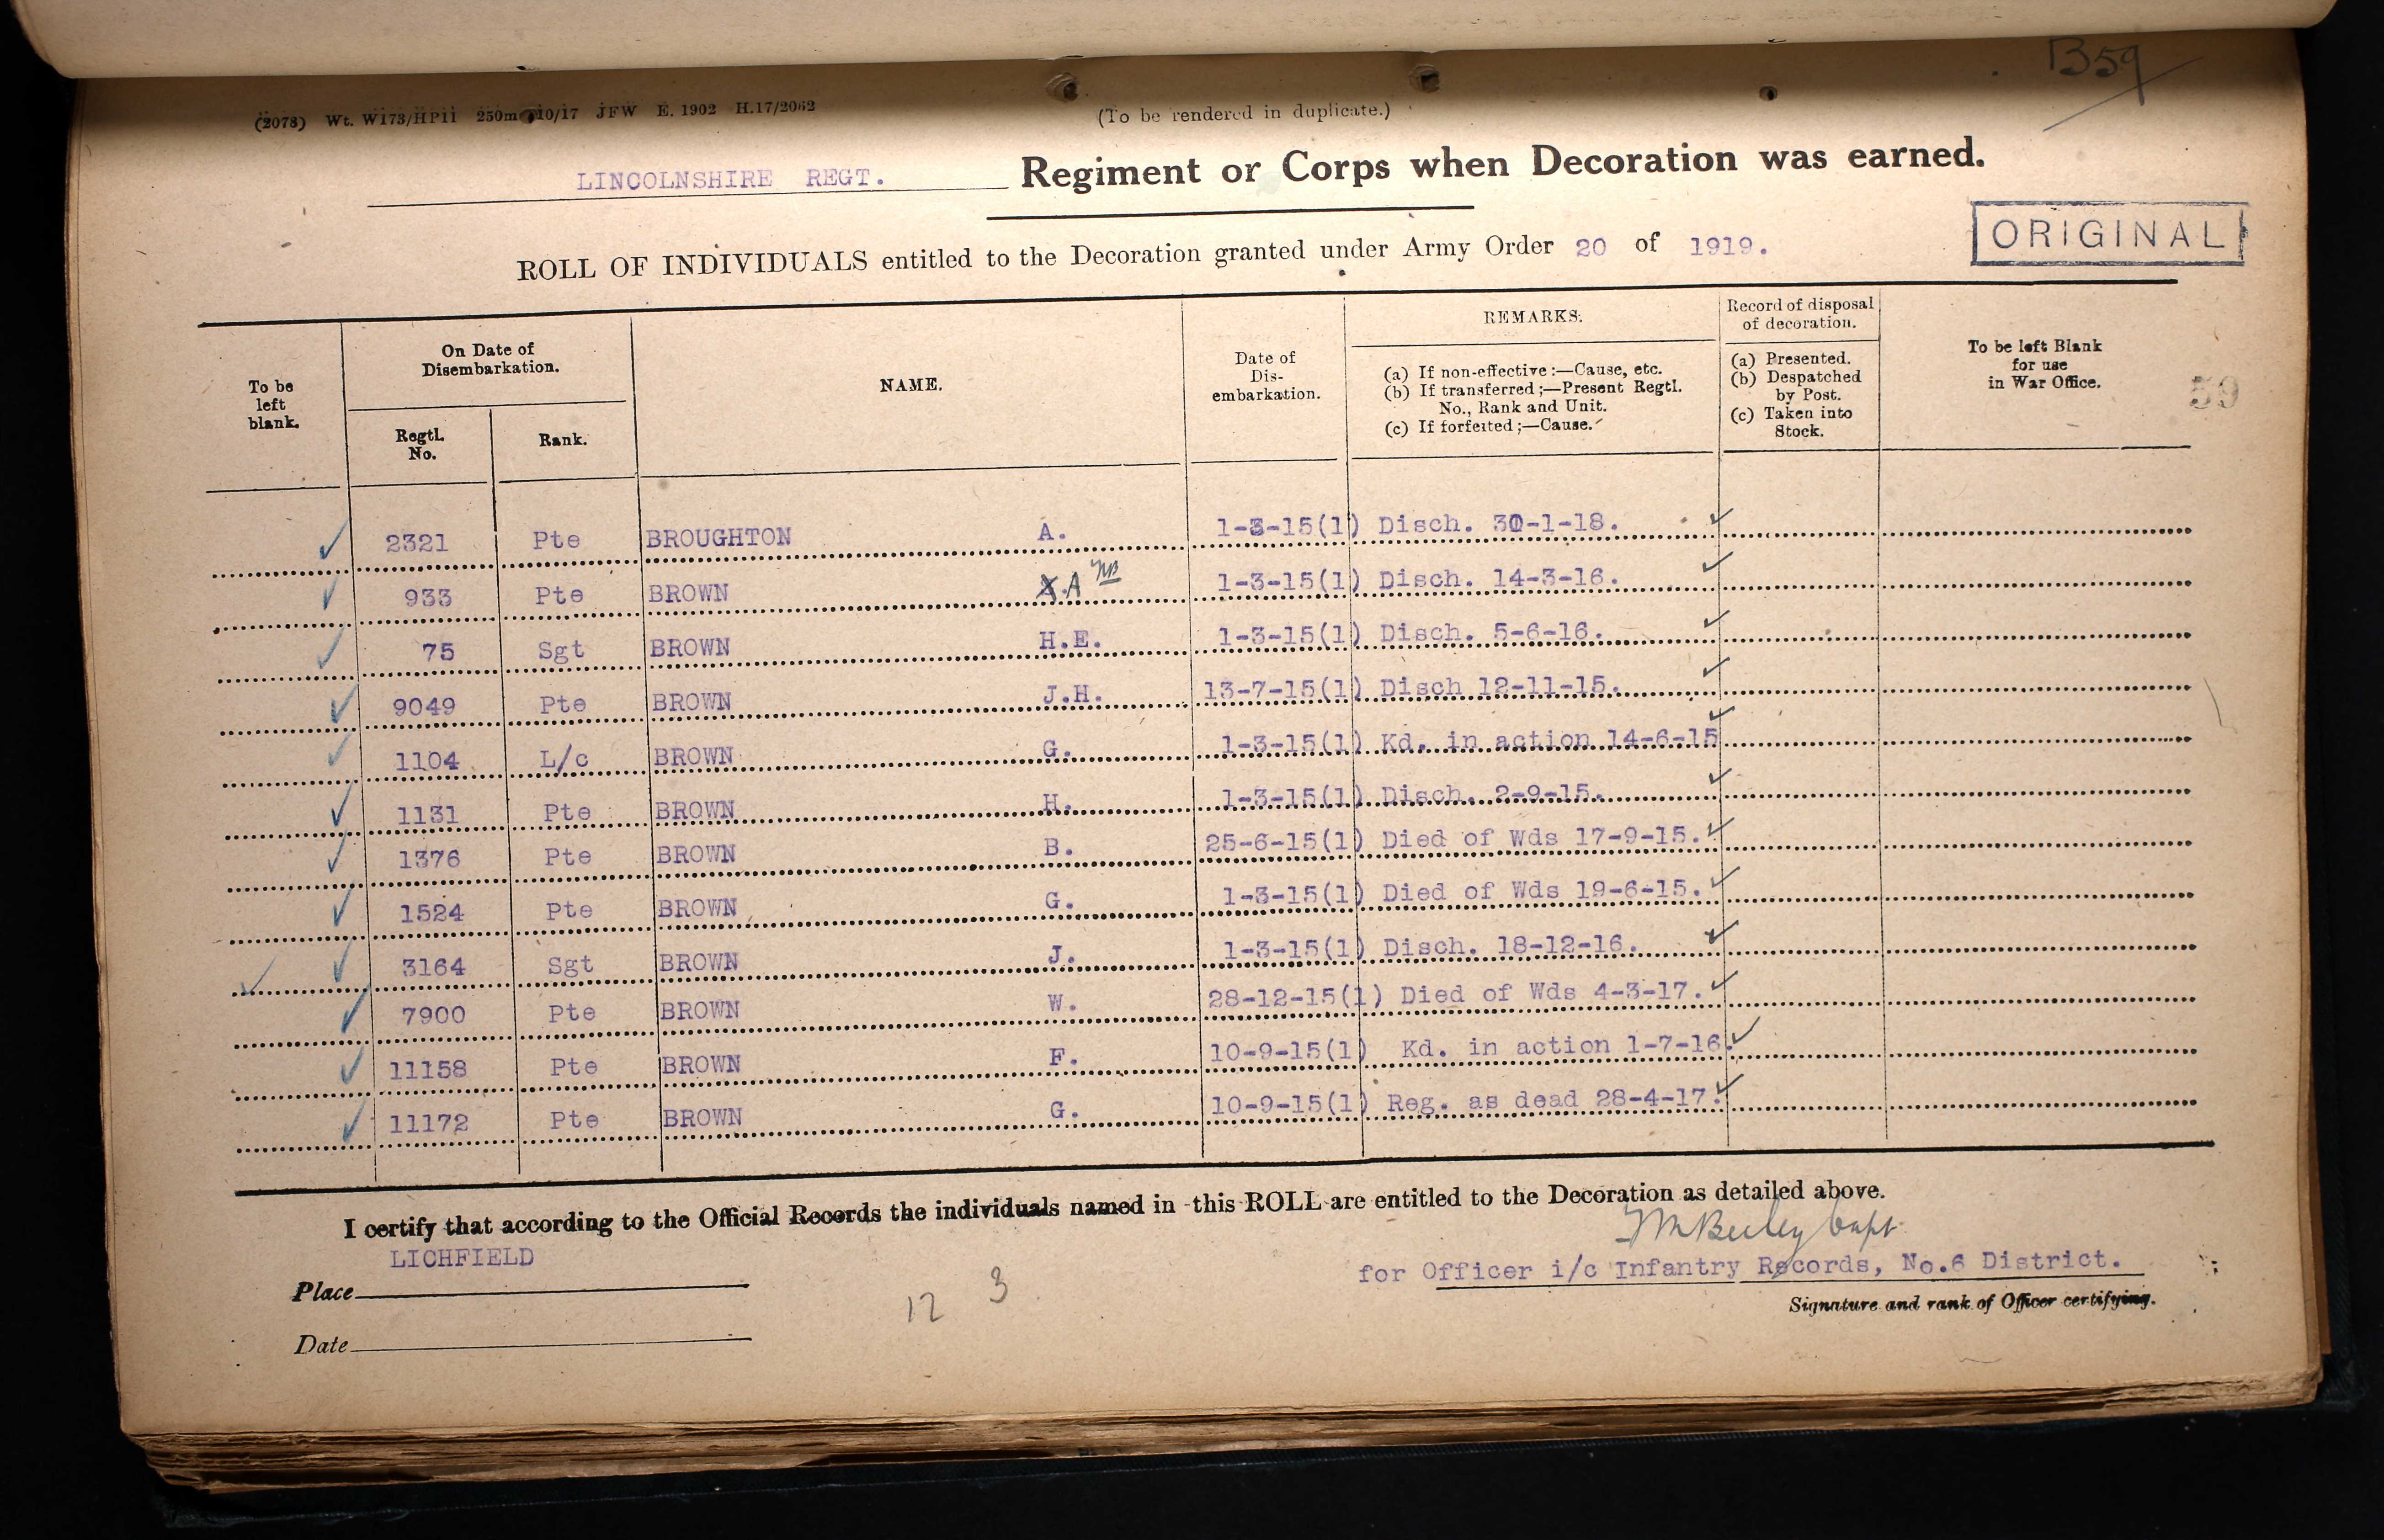 B59
(2078) Wt. W173/HP11 250m 10/17 JFW E. 1902 H.17/2062
(To be rendered in duplicate.)
LINCOLNSHIRE REGT. Regiment or Corps when Decoration was earned.
ORIGINAL
ROLL OF INDIVIDUALS entitled to the Decoration granted under Army Order 20 of 1919.
To be left blank.
On Date of Disembarkation.
Regtl. No.
Rank.
NAME.
Date of Dis-embarkation.
REMARKS.
(a) If non-effective:—Cause, etc.
(b) If transferred;—Present Regtl. No., Rank and Unit.
(c) If forfeited;—Cause.
Record of disposal of decoration.
(a) Presented.
(b) Despatched by Post.
(c) Taken into Stock.
To be left Blank for use in War Office.
59
2321 Pte BROUGHTON A. 1-3-15(1) Disch. 30-1-18.
933 Pte BROWN A 1-3-15(1) Disch. 14-3-16.
75 Sgt BROWN H.E. 1-3-15(1) Disch. 5-6-16.
9049 Pte BROWN J.H. 13-7-15(1) Disch 12-11-15.
1104 L/c BROWN G. 1-3-15(1) Kd. in action 14-6-15
1131 Pte BROWN H. 1-3-15(1) Disch. 2-9-15.
1376 Pte BROWN B. 25-6-15(1) Died of Wds 17-9-15.
1524 Pte BROWN G. 1-3-15(1) Died of Wds 19-6-15.
3164 Sgt BROWN J. 1-3-15(1) Disch. 18-12-16.
7900 Pte BROWN W. 28-12-15(1) Died of Wds 4-3-17.
11158 Pte BROWN F. 10-9-15(1) Kd. in action 1-7-16.
11172 Pte BROWN G. 10-9-15(1) Reg. as dead 28-4-17.
I certify that according to the Official Records the individuals named in this ROLL are entitled to the Decoration as detailed above.
Capt
LICHFIELD
Place
for Officer i/c Infantry Records, No.6 District.
12 3
Signature and rank of Officer certifying.
Date